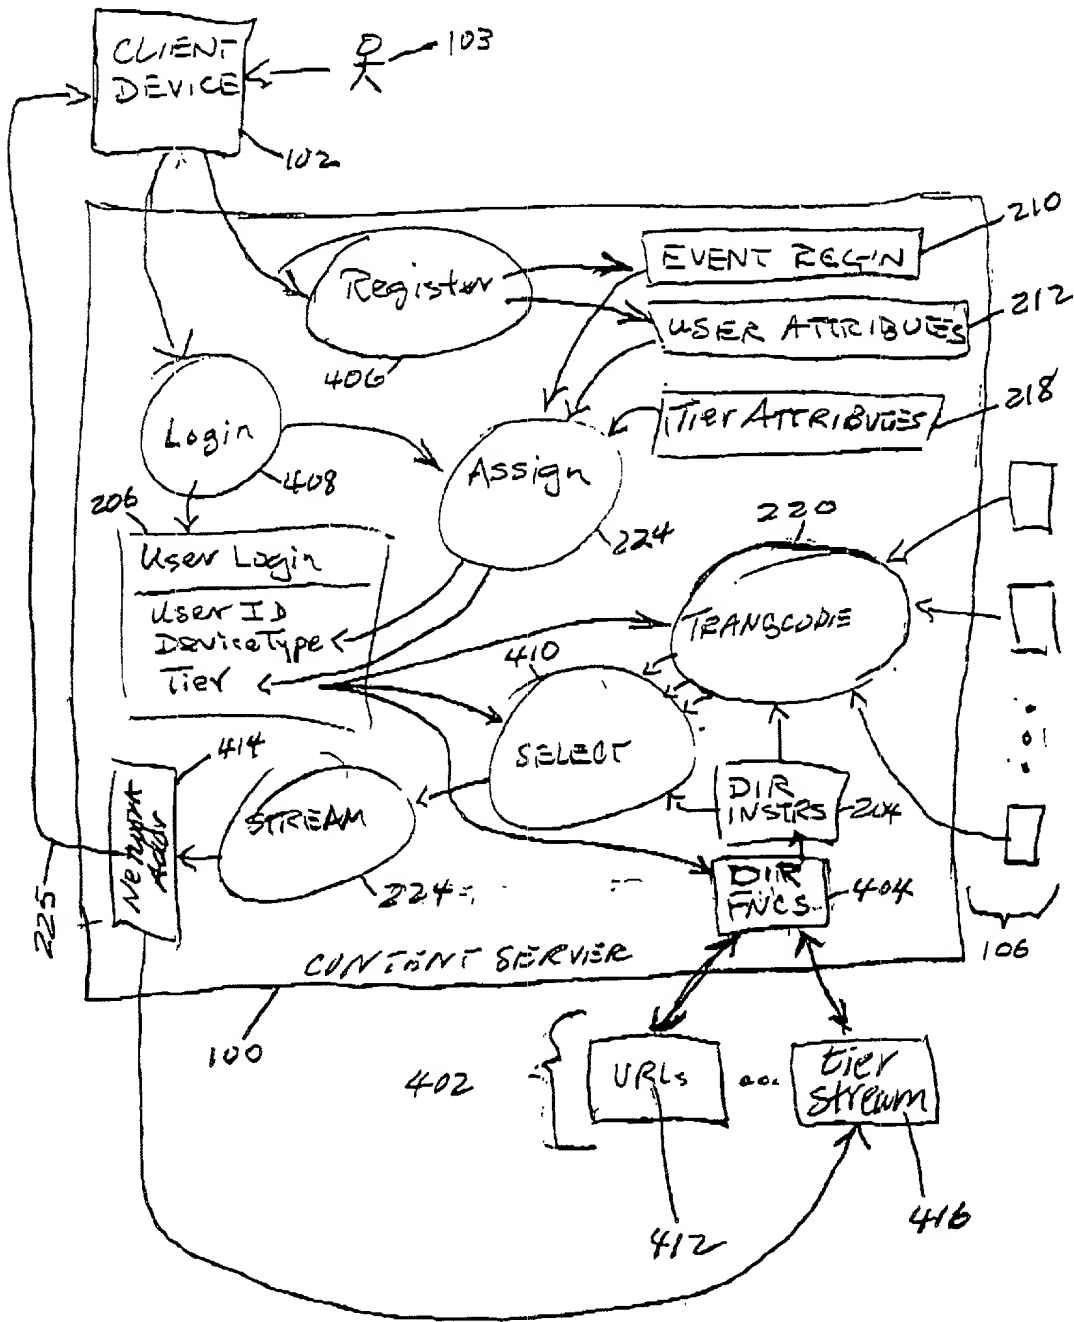 CLIENT
DEVICE
103
102
210
EVENT REGIN
Register
212
USER ATTRIBUES
406
218
Tier ATTRIBUTES
Login
408
Assign
224
206
User Login
User ID
DeviceType
Tier
220
TRANSCODE
410
SELECT
414
Network
Addr
STREAM
224
DIR
INSTRS
204
DIR
FNCS
404
225
106
CONTENT SERVER
100
402
URLs
...
tier
stream
412
416